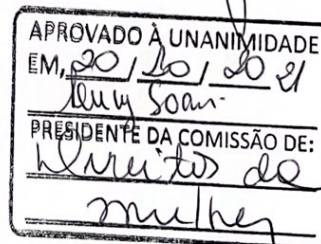 APROVADO À UNANIMIDADE
EM, 20 / 10 / 20 21
Soares
PRESIDENTE DA COMISSÃO DE:
Direitos da
mulher